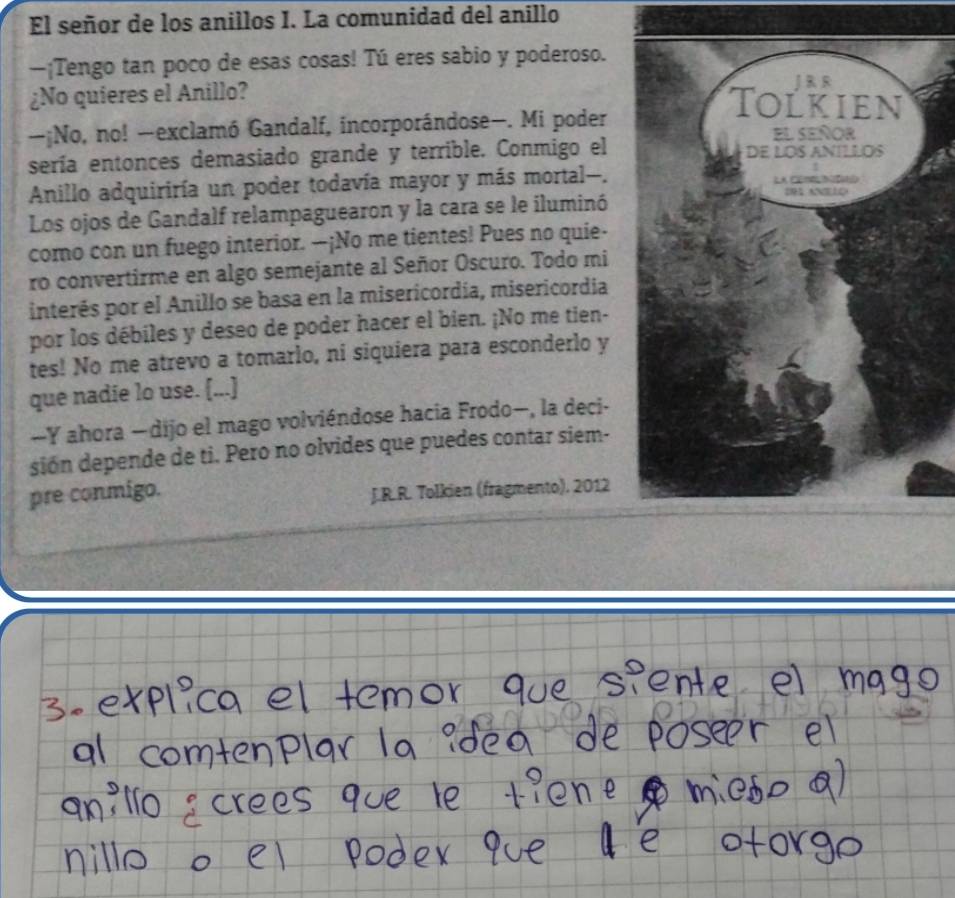 El señor de los anillos I. La comunidad del anillo
—¡Tengo tan poco de esas cosas! Tú eres sabio y poderoso.
¿No quieres el Anillo?
—¡No, no! —exclamó Gandalf, incorporándose—. Mi poder
sería entonces demasiado grande y terrible. Conmigo el
Anillo adquiriría un poder todavía mayor y más mortal—.
Los ojos de Gandalf relampaguearon y la cara se le iluminó
como con un fuego interior. —¡No me tientes! Pues no quie-
ro convertirme en algo semejante al Señor Oscuro. Todo mi
interés por el Anillo se basa en la misericordia, misericordia
por los débiles y deseo de poder hacer el bien. ¡No me tien-
tes! No me atrevo a tomarlo, ni siquiera para esconderlo y
que nadie lo use. [...]
—Y ahora —dijo el mago volviéndose hacia Frodo—, la deci-
sión depende de ti. Pero no olvides que puedes contar siem-
pre conmigo.
J.R.R. Tolkien (fragmento). 2012
J R R
TOLKIEN
EL SEÑOR
DE LOS ANILLOS
I
LA COMUNIDAD
DEL ANILLO
3. explica el temor que siente el mago
al comtenplar la idea de poseer el
anillo ¿crees que le tiene miedo al
nillo o el poder que le otorgo